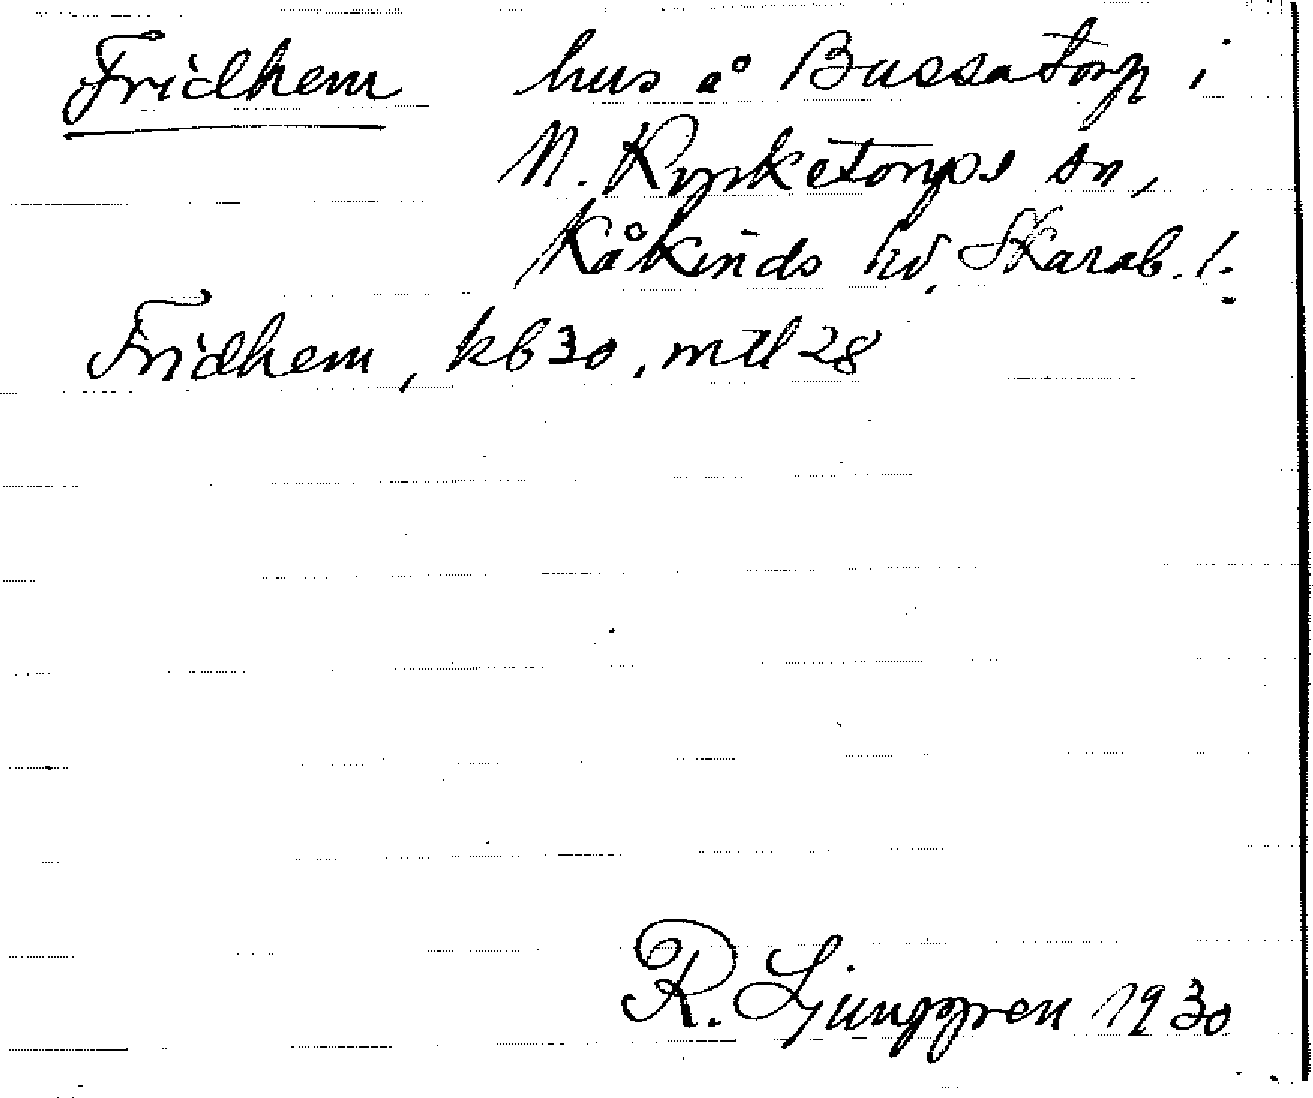 Fridhem hus å Bussatorp i
N. Kyrketorps sn,
Kåkinds hd, Skarab. l.
Fridhem, kb 30, mtl 28
R. Ljunggren 1930